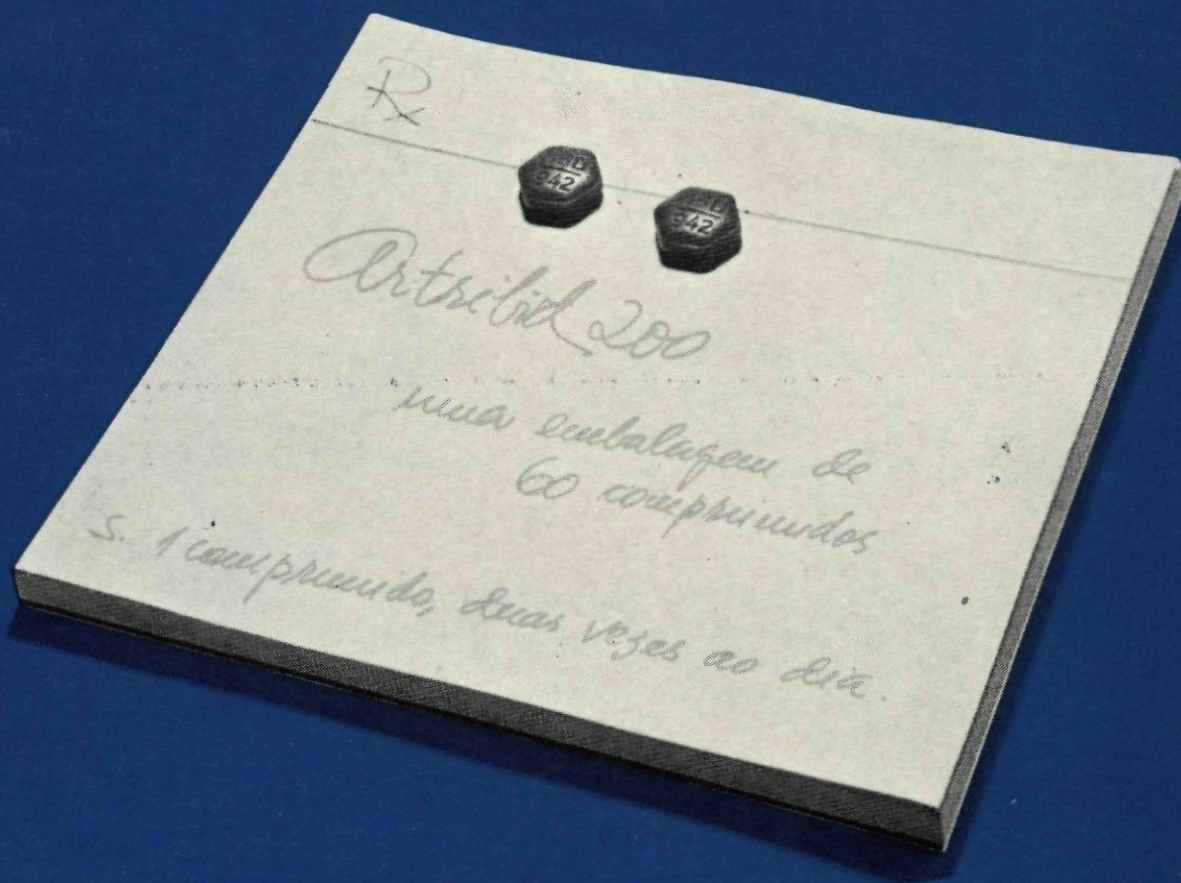 Rx
MSD
942
MSD
942
Artribid 200
uma embalagem de
60 comprimidos
S. 1 comprimido, duas vezes ao dia.